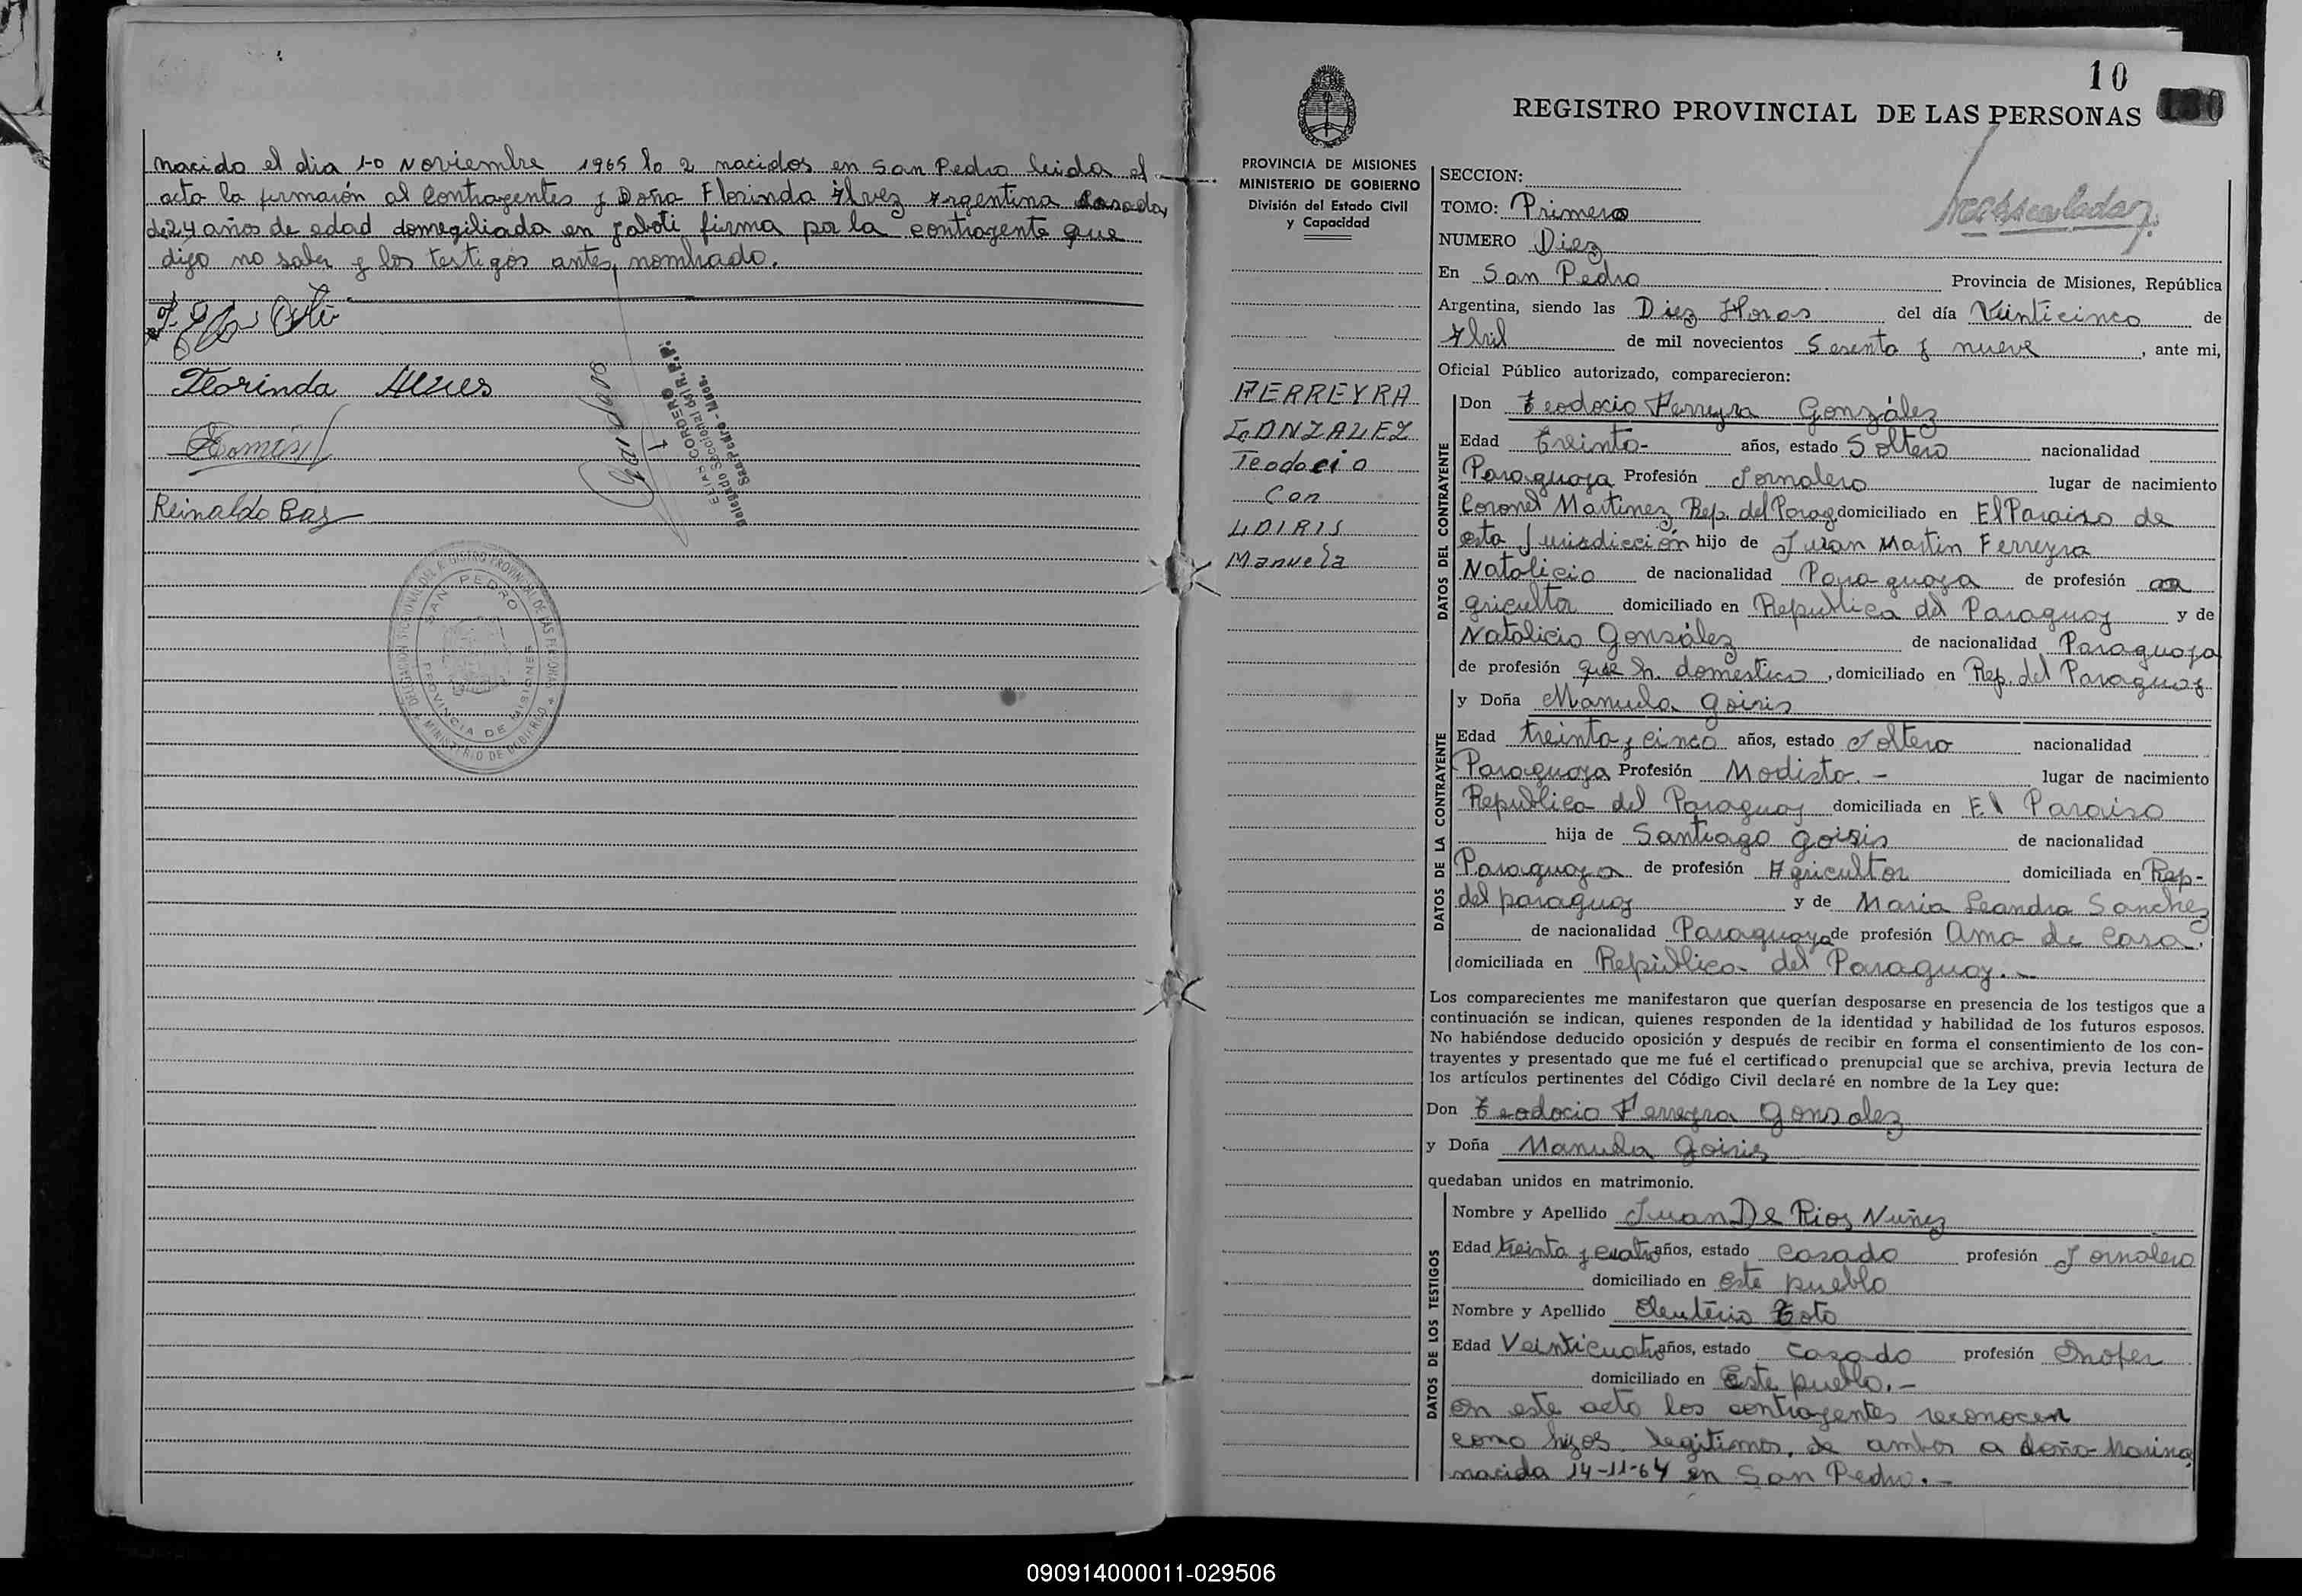 nacido el dia 10 Noviembre 1965 lo 2 nacidos en San Pedro leida el
acta la firmarón al Contrayentes y Doña Florinda Alvez Argentina Casada,
de 24 años de edad domeçiliada en Jaboti firma por la contrayente que
dijo no saber y los testigos antes nombrado.
Florinda Alves
Ramirez
Reinaldo Baz
ELIAS CORDERO
Delegado Seccional del R.P.P.
San Pedro - Mnes.
DELEGACION SECCIONAL DEL REGISTRO PROVINCIAL DE LAS PERSONAS
SAN PEDRO
PROVINCIA DE MISIONES
MINISTERIO DE GOBIERNO
10
130
REGISTRO PROVINCIAL DE LAS PERSONAS
PROVINCIA DE MISIONES
MINISTERIO DE GOBIERNO
División del Estado Civil
y Capacidad
FERREYRA
GONZALEZ
Teodocio
Con
GOIRIS
Manuela
SECCION:
TOMO: Primero
NUMERO Diez
En San Pedro Provincia de Misiones, República
Argentina, siendo las Diez Horas del día Veinticinco de
Abril de mil novecientos Sesenta y nueve, ante mi,
Oficial Público autorizado, comparecieron:
DATOS DEL CONTRAYENTE
Don Teodocio Ferreyra González
Edad treinta- años, estado Soltero nacionalidad
Paraguaya Profesión Jornalero lugar de nacimiento
Coronel Martinez Rep. del Parag domiciliado en El Paraiso de
esta Jurisdicción hijo de Juan Martin Ferreyra
Natalicio de nacionalidad Paraguaya de profesión a
gricultor domiciliado en Republica del Paraguay y de
Natalicia González de nacionalidad Paraguaya
de profesión que h. domestico, domiciliado en Rep. del Paraguay
DATOS DE LA CONTRAYENTE
y Doña Manuela Goiris
Edad treinta y cinco años, estado Soltero nacionalidad
Paraguaya Profesión Modista.- lugar de nacimiento
Republica del Paraguay domiciliada en El Paraiso
hija de Santiago Goiris de nacionalidad
Paraguaya de profesión Agricultor domiciliada en Rep-
del paraguay y de Maria Leandra Sanchez
de nacionalidad Paraguaya de profesión Ama de Casa.
domiciliada en Republica del Paraguay.-
Los comparecientes me manifestaron que querían desposarse en presencia de los testigos que a
continuación se indican, quienes responden de la identidad y habilidad de los futuros esposos.
No habiéndose deducido oposición y después de recibir en forma el consentimiento de los con-
trayentes y presentado que me fué el certificado prenupcial que se archiva, previa lectura de
los artículos pertinentes del Código Civil declaré en nombre de la Ley que:
Don Teodocio Ferreyra Gonsalez
y Doña Manuela Goiris
quedaban unidos en matrimonio.
DATOS DE LOS TESTIGOS
Nombre y Apellido Juan De Rios Nuñez
Edad treinta y cuatro años, estado Casado profesión Jornalero
domiciliado en este pueblo
Nombre y Apellido Eleuterio Toto
Edad Veinticuatro años, estado Casado profesión Chofer
domiciliado en Este pueblo.-
En este acto los contrayentes reconocen
como hijos legitimos de ambos a doña Marina
nacida 14-11-64 en San Pedro.-
090914000011-029506